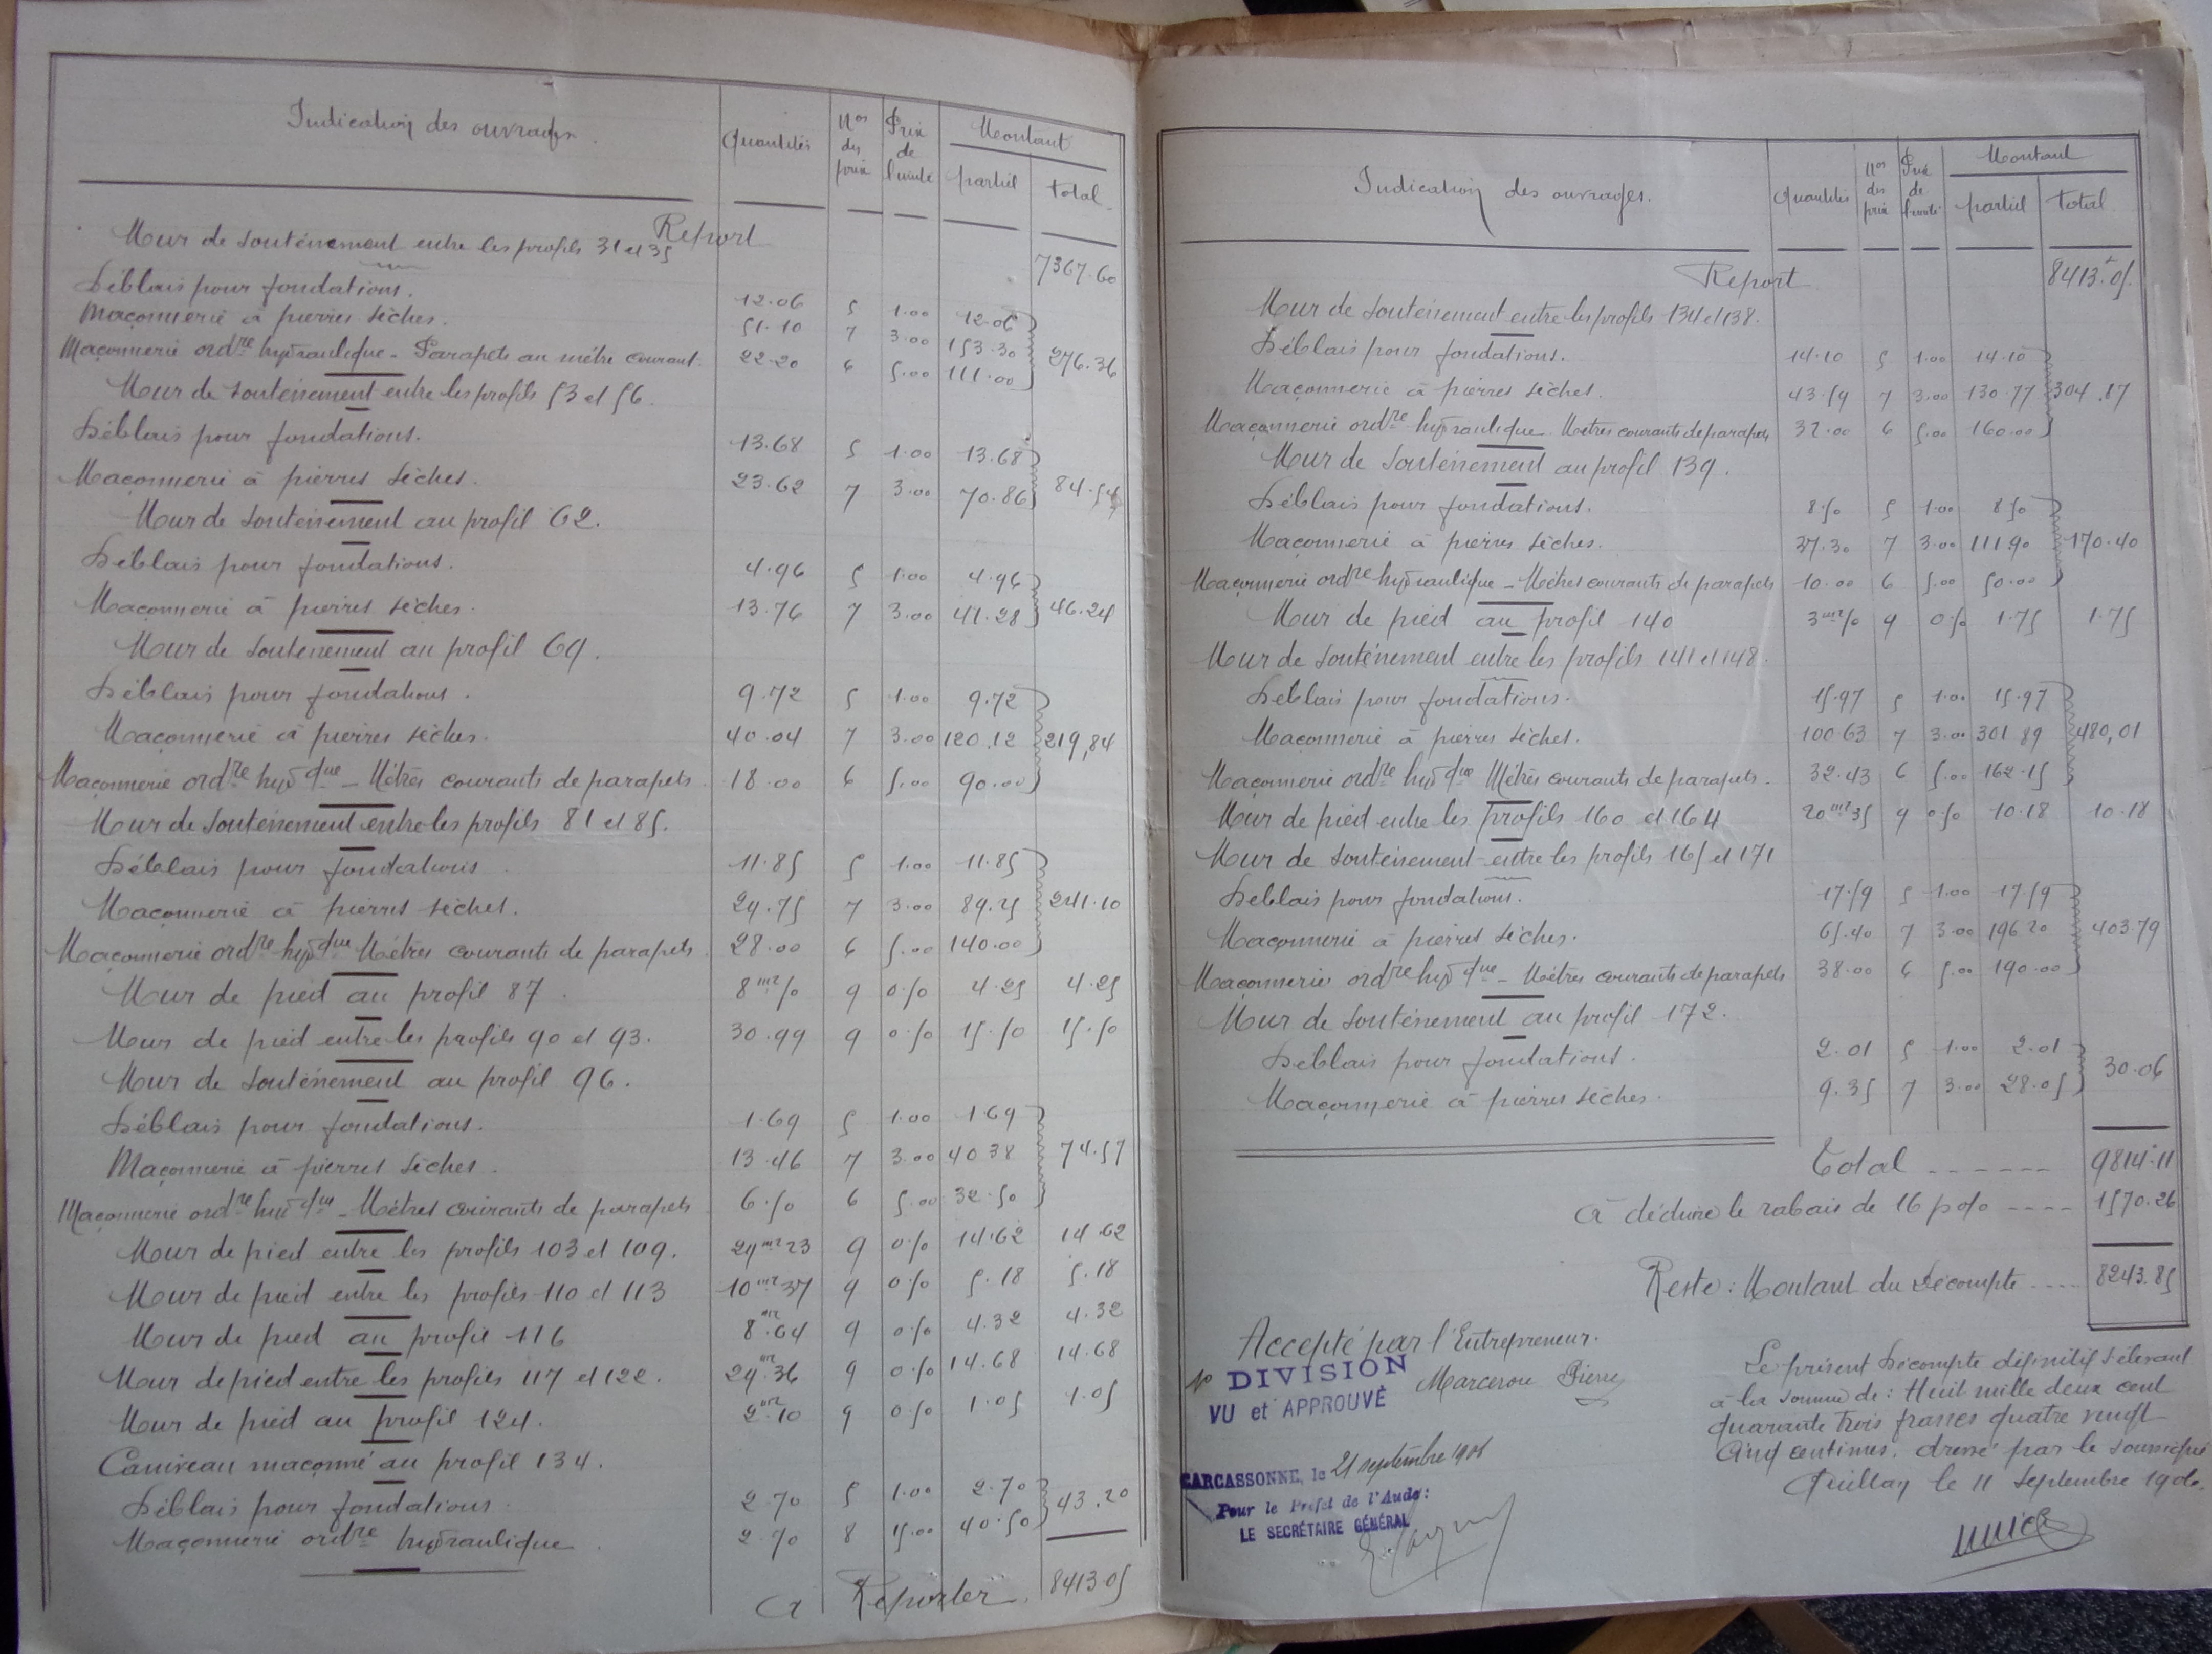 Indication des ouvrages. Quantités Nos des prix Prix de l'unité Montant partiel total
Report 7367.60
Mur de soutènement entre les profils 31 et 35
Déblais pour fondations. 12.06 5 1.00 12.06
Maçonnerie à pierres sèches. 51.10 7 3.00 153.30 276.36
Maçonnerie ordre hydraulique - Parapets au mètre courant. 22.20 6 5.00 111.00
Mur de soutènement entre les profils 53 et 56.
Déblais pour fondations. 13.68 5 1.00 13.68
Maçonnerie à pierres sèches. 23.62 7 3.00 70.86 84.54
Mur de soutènement au profil 62.
Déblais pour fondations. 4.96 5 1.00 4.96
Maçonnerie à pierres sèches. 13.76 7 3.00 41.28 46.24
Mur de soutènement au profil 69.
Déblais pour fondations. 9.72 5 1.00 9.72
Maçonnerie à pierres sèches. 40.04 7 3.00 120.12 219,84
Maçonnerie ordre hydque - Mètres courants de parapets 18.00 6 5.00 90.00
Mur de soutènement entre les profils 81 et 85.
Déblais pour fondations 11.85 5 1.00 11.85
Maçonnerie à pierres sèches. 29.75 7 3.00 89.25 241.10
Maçonnerie ordre hydque Mètres courants de parapets. 28.00 6 5.00 140.00
Mur de pied au profil 87. 8m250 9 0.50 4.25 4.25
Murs de pied entre les profils 90 et 93. 30.99 9 0.50 15.50 15.50
Mur de soutènement au profil 96.
Déblais pour fondations. 1.69 5 1.00 1.69
Maçonnerie à pierres sèches. 13.46 7 3.00 40 38 74.57
Maçonnerie ordre hydque - Mètres courants de parapets 6.50 6 5.00 32.50
Mur de pied entre les profils 103 et 109. 29m223 9 0.50 14.62 14.62
Mur de pied entre les profils 110 et 113 10m237 9 0.50 5.18 5.18
Mur de pied au profil 116 8m2.64 9 0.50 4.32 4.32
Mur de pied entre les profils 117 et 122. 29m2.36 9 0.50 14.68 14.68
Mur de pied au profil 124. 2m2.10 9 0.50 1.05 1.05
Caniveau maçonné au profil 134.
Déblais pour fondations. 2.70 5 1.00 2.70
Maçonnerie ordre hydraulique. 2.70 8 15.00 40.50 43.20
A Reporter. 8413.05
Indication des ouvrages. Quantités Nos des prix Prix de l'unité Montant partiel total
Report 8413f.05.
Mur de soutènement entre les profils 134 et 138.
Déblais pour fondations. 14.10 5 1.00 14.10
Maçonnerie à pierres sèches. 43.59 7 3.00 130.77 304.87
Maçonnerie ordre hydraulique Mètres courants de parapets 32.00 6 5.00 160.00
Mur de soutènement au profil 139.
Déblais pour fondations. 8.50 5 1.00 8 50
Maçonnerie à pierres sèches. 37.30 7 3.00 111 90 170.40
Maçonnerie ordre hydraulique - Mètres courants de parapets 10.00 6 5.00 50.00
Mur de pied au profil 140 3m250 9 0.50 1.75 1.75
Mur de soutènement entre les profils 141 et 148.
Déblais pour fondations. 15.97 5 1.00 15.97
Maçonnerie à pierres sèches. 100 63 7 3.00 301 89 480,01
Maçonnerie ordre hydque Mètres courants de parapets. 32.43 6 5.00 162.15
Mur de pied entre les profils 160 et 164 20m235 9 0.50 10.18 10.18
Mur de soutènement entre les profils 165 et 171
Déblais pour fondations. 17.59 5 1.00 17 59
Maçonnerie à pierres sèches. 65.40 7 3.00 196 20 403.79
Maçonnerie ordre hydque - Mètres courants de parapets 38.00 6 5.00 190.00
Mur de soutènement au profil 172.
Déblais pour fondations. 2.01 5 1.00 2.01
Maçonnerie à pierres sèches. 9.35 7 3.00 28.05 30.06
Total ------ 9814f.11
A déduire le rabais de 16 p% ---- 1570.26
Reste : Montant du Décompte ---- 8243.85
Accepté par l'Entrepreneur.
Marcerou Pierre
DIVISION
VU et APPROUVÉ
CARCASSONNE, le 21 septembre 1906
Pour le Préfet de l'Aude:
LE SECRÉTAIRE GÉNÉRAL
Le présent Décompte définitif s'élevant
à la somme de : Huit mille deux cent
quarante trois francs quatre vingt
cinq centimes, dressé par le soussigné
Quillan le 11 Septembre 1906.